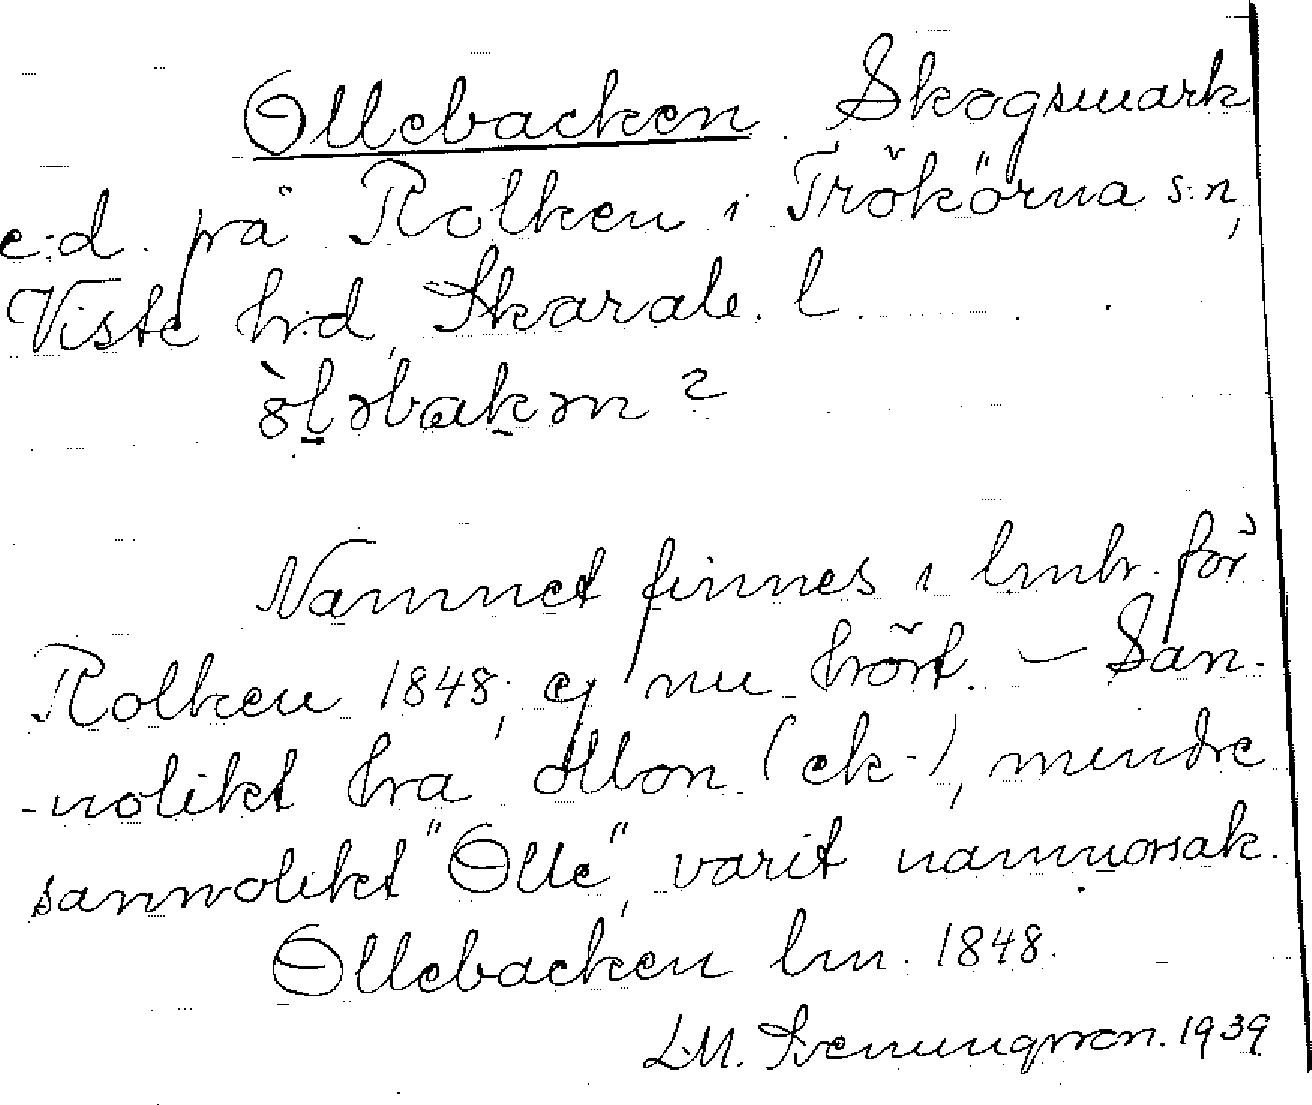 Ollebacken. Skogsmark
e.d. på Rolken i Trökörna s:n,
Viste hd, Skarab. l.
òləbakən?
Namnet finnes i lmhr. för
Rolken 1848; ej nu hört. — San-
-nolikt ha ollon (ek-), mindre
sannolikt "Olle", varit namnorsak.
Ollebacken lm. 1848.
L.M. Svenungsson. 1939